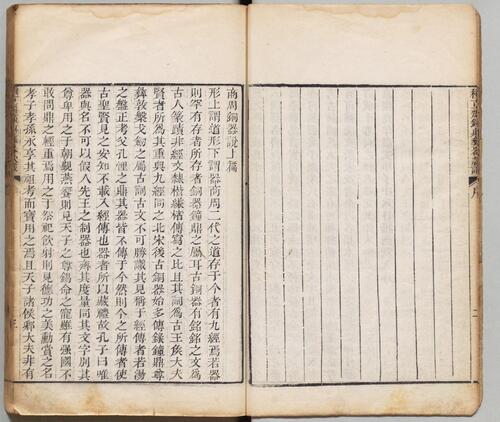 商周銅器說上篇
形上謂道形下謂器商周二代之道存于今者有九經焉若器
則罕有存者所存者銅器鐘鼎之屬耳古銅器有銘銘之文爲
古人篆蹟非經文隸楷縑楮傳寫之比且其詞爲古王矦大夫
賢者所爲其重與九經同之北宋後古銅器始多傳錄鐘鼎尊
彝敦槃戈劒之屬古詞古文不可勝識其見稱于經傳者若湯
之盤正考父孔悝之鼎其器皆不傳于今然則今之所傳者使
古聖賢見之安知不載入經傳也器者所以藏禮故孔子曰唯
器與名不可以假人先王之制器也齊其度量同其文字別其
尊卑用之于朝覲燕饗則見天子之尊錫命之寵雖有强國不
敢問鼎之輕重焉用之于祭祀飲射則見德功之美勳賞之名
孝子孝孫永享其祖考而寶用之焉且天子諸侯卿大夫非有